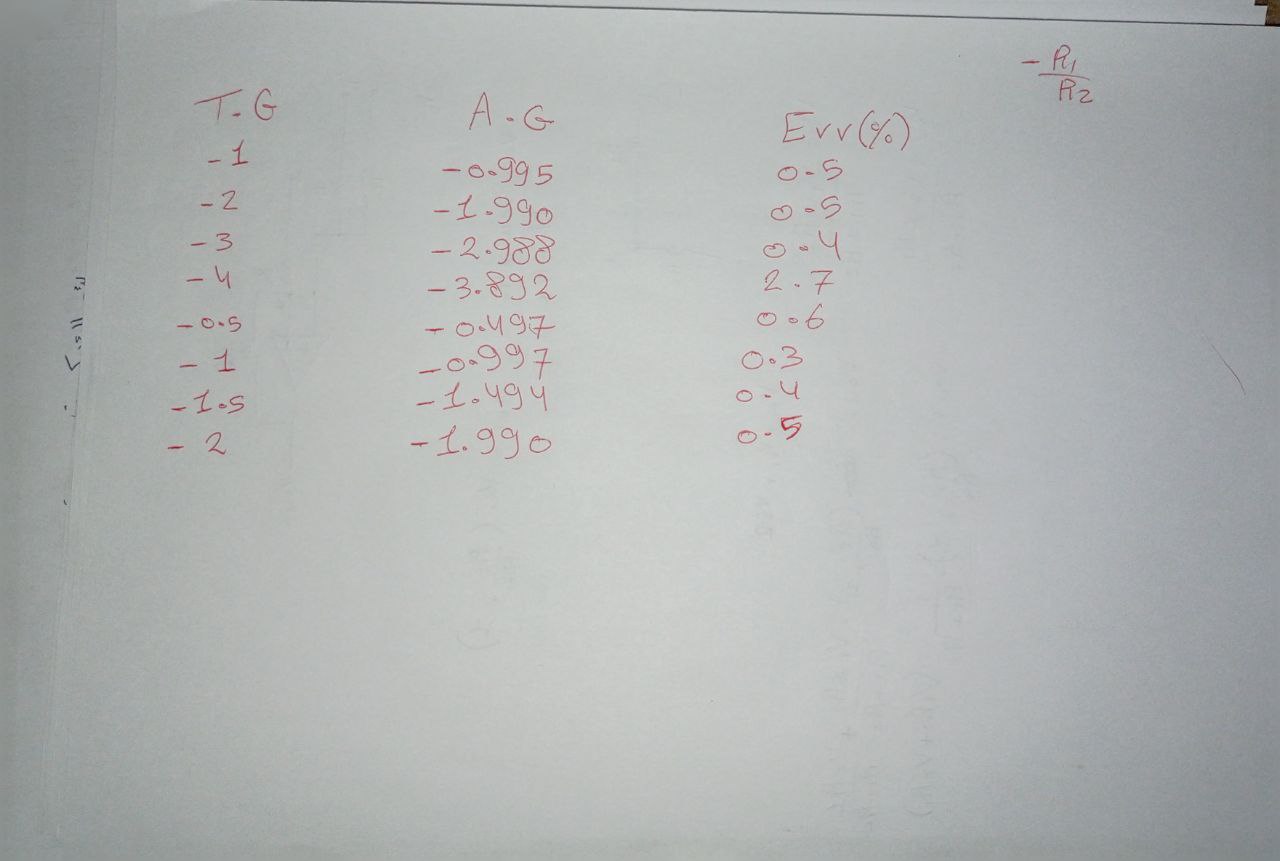 - R1
R2
T.G A.G Err(%)
-1 -0.995 0.5
-2 -1.990 0.5
-3 -2.988 0.4
-4 -3.892 2.7
-0.5 -0.497 0.6
-1 -0.997 0.3
-1.5 -1.494 0.4
-2 -1.990 0.5